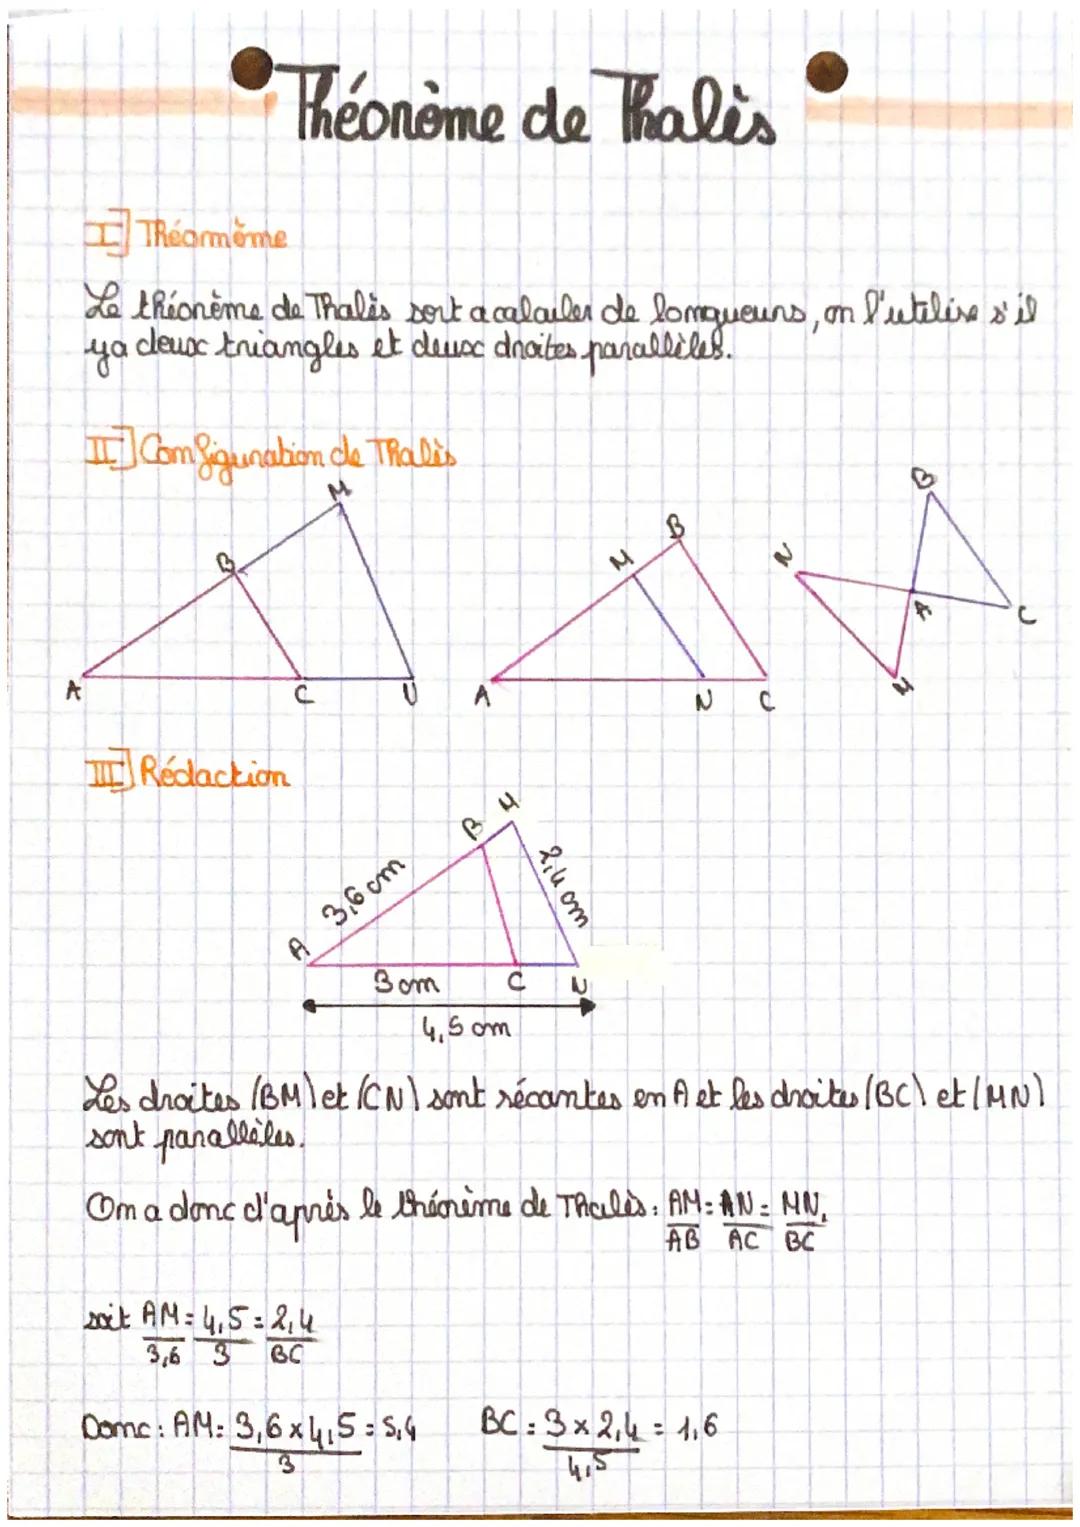 Théorème de Thalès
I] Théorème
Le théorème de Thalès sert a calculer de longueurs, on l'utilise s'il
y a deux triangles et deux droites parallèles.
II] Configuration de Thalès
M
B
A
C
U
B
M
A
N
C
B
N
A
C
M
III] Rédaction
M
B
3,6 cm
2,4 cm
A
3 cm
C
N
4,5 cm
Les droites (BM) et (CN) sont sécantes en A et les droites (BC) et (MN)
sont parallèles.
On a donc d'après le théorème de Thalès : AM/AB = AN/AC = MN/BC,
soit AM/3,6 = 4,5/3 = 2,4/BC
Donc : AM = 3,6 x 4,5/3 = 5,4 BC = 3 x 2,4/4,5 = 1,6